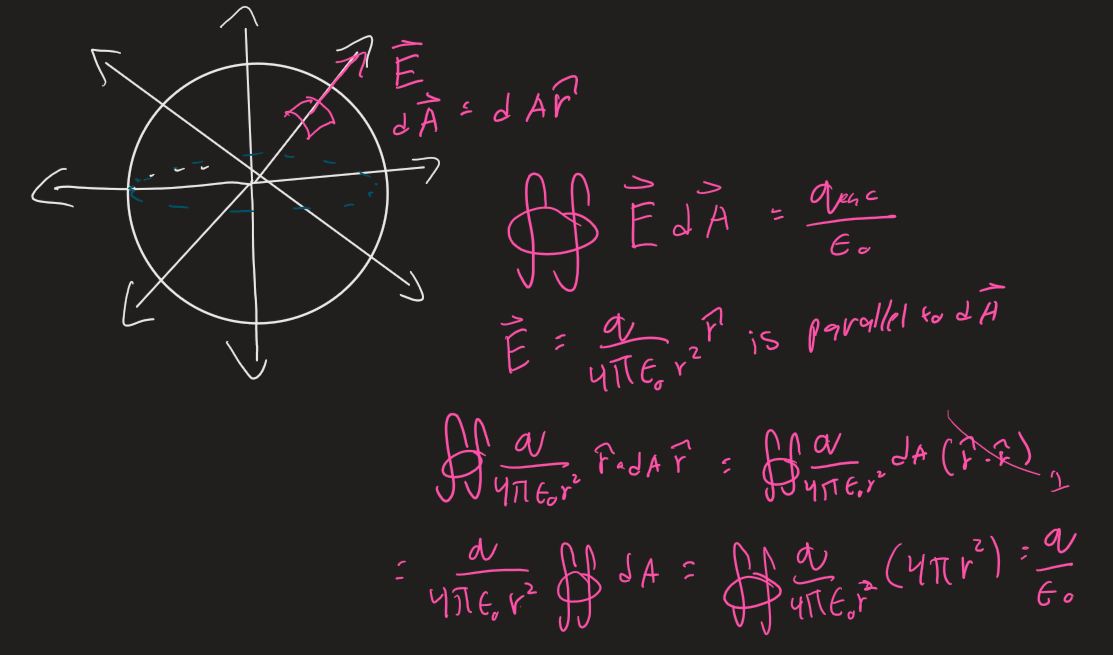 E⃗
dA⃗ = dA r̂
∯ E⃗ dA⃗ = qenc / ε₀
E⃗ = q / 4πε₀r² r̂ is parallel to dA⃗
∯ q / 4πε₀r² r̂ · dA r̂ = ∯ q / 4πε₀r² dA (r̂ · r̂) 1
= q / 4πε₀r² ∯ dA = ∯ q / 4πε₀r² (4πr²) = q / ε₀